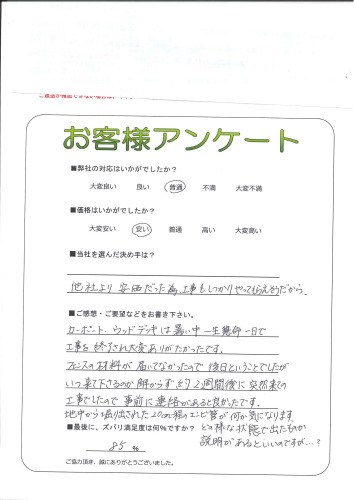 お客様アンケート
■弊社の対応はいかがでしたか？
大変良い 良い 普通 不満 大変不満
■価格はいかがでしたか？
大変安い 安い 普通 高い 大変高い
■当社を選んだ決め手は？
他社より安価だった為 工事もしっかりやってもらえそうだから。
■ご感想・ご要望などをお書き下さい。
カーポート、ウッドデッキは暑い中一生懸命一日で
工事を終了され大変ありがたかったです。
フェンスの材料が届いてなかったので後日ということでしたが
いつ来て下さるのか解からず約2週間後に突然来ての
工事でしたので事前に連絡があると良かったです。
地中から掘り出された20cm程のエンビ管が何か気になります
どの様な状態で出たものか
説明があるといいのですが…？
■最後に、ズバリ満足度は何％ですか？
85 ％
ご協力頂き、誠にありがとうございました。